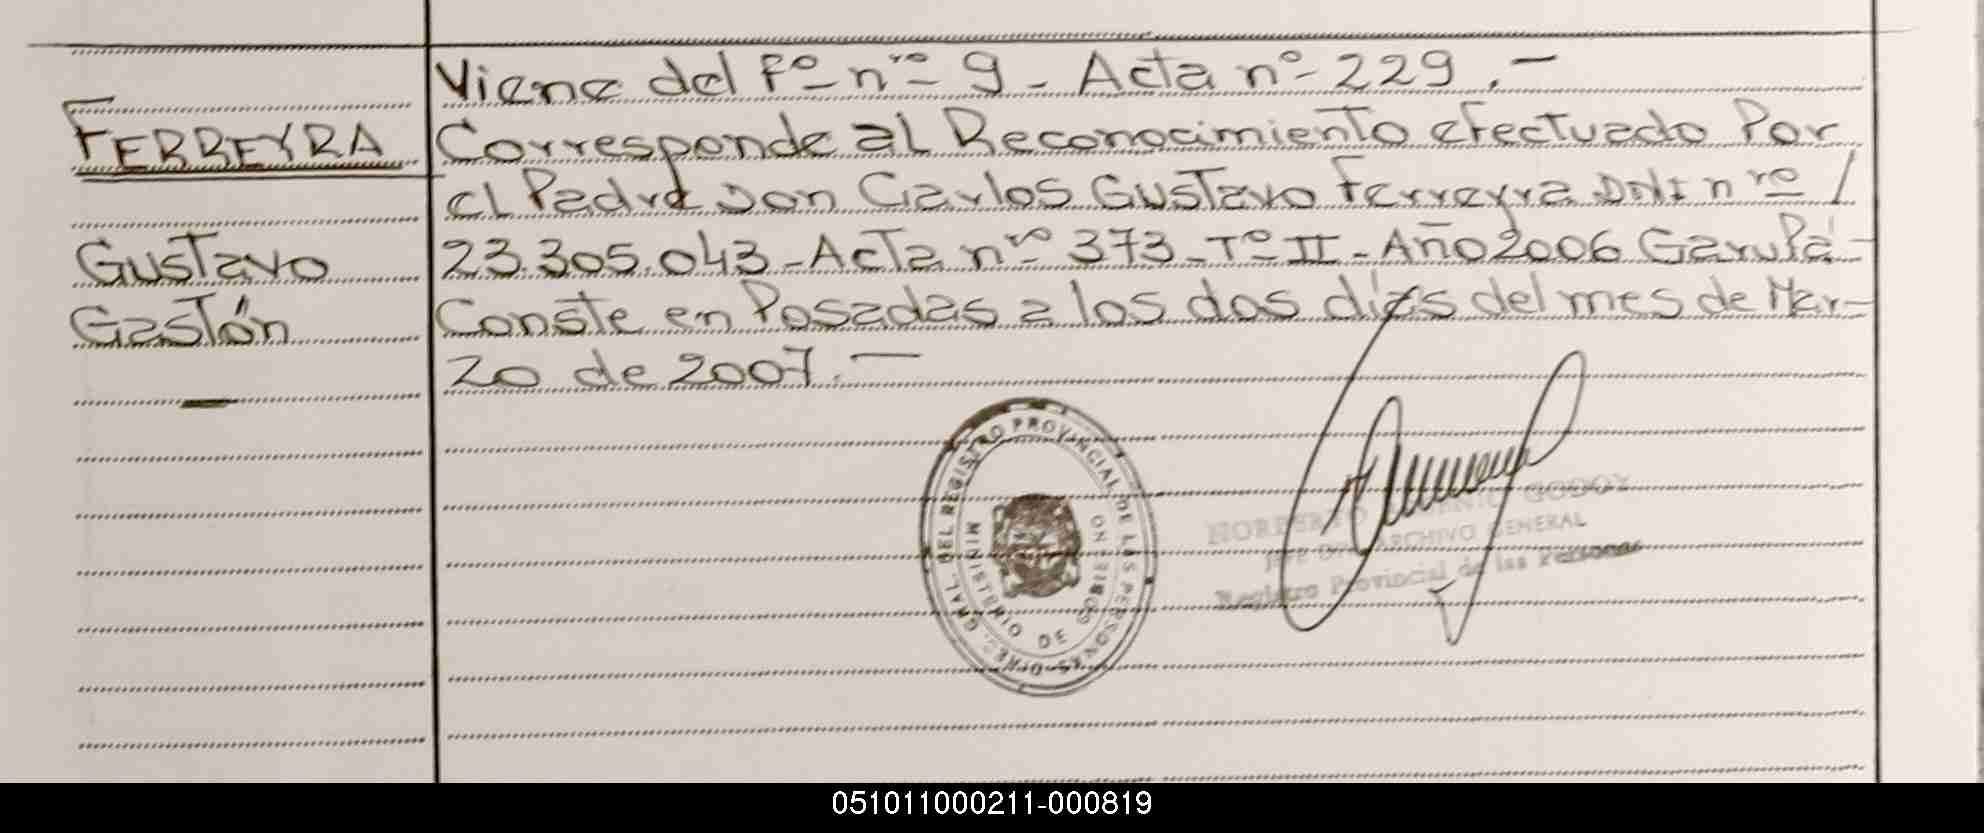 Viene del fº nrº 9 - Acta nº 229.-
FERREYRA
Corresponde al Reconocimiento efectuado Por
el Padre Don Carlos Gustavo Ferreyra DNI nrº /
Gustavo
23.305.043 - Acta nrº 373 - Tº II - Año 2006 Garupá -
Gastón
Conste en Posadas a los dos días del mes de Mar-
zo de 2007.-
DIREC. GRAL. DEL REGISTRO PROVINCIAL DE LAS PERSONAS
MINISTERIO DE GOBIERNO
NORBERTO GODOY
JEFE ARCHIVO GENERAL
Registro Provincial de las Personas
051011000211-000819